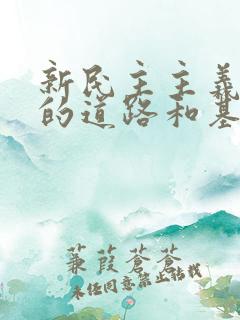 新民主主義
的道路和基
蒹葭蒼蒼
未任同意禁止转载